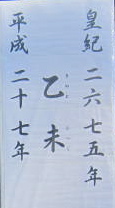 皇紀 二六七五年
乙未
平成 二十七年